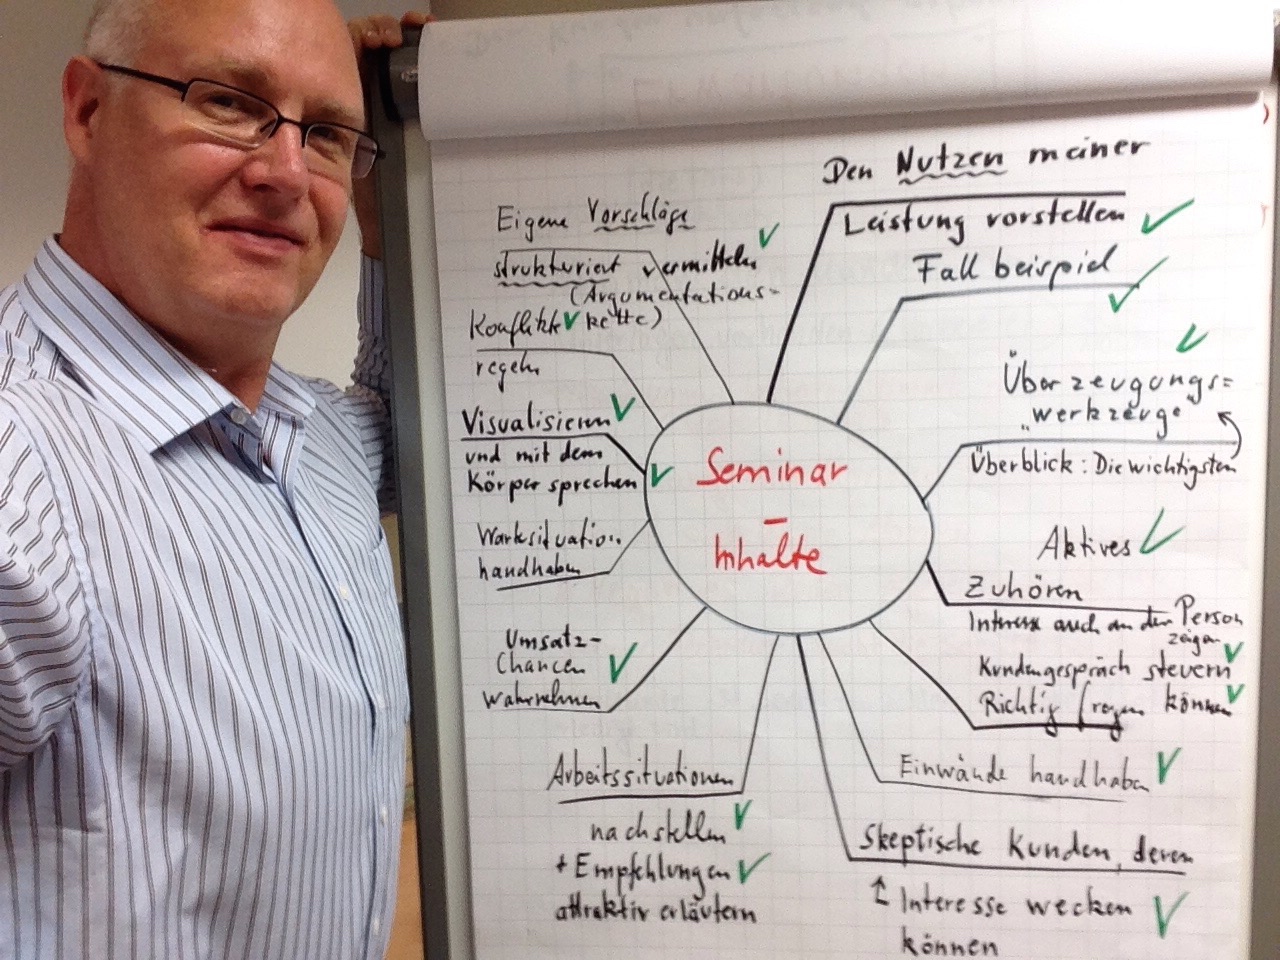 Den Nutzen meiner
Leistung vorstellen
Fallbeispiel
Überzeugungs=
"werkzeuge"
Überblick: Die wichtigsten
Aktives
Zuhören
Interesse auch an der Person
zeigen
Kundengespräch steuern
Richtig fragen können
Einwände handhaben
Skeptische Kunden, deren
Interesse wecken
können
Arbeitssituationen
nachstellen
+ Empfehlungen
attraktiv erläutern
Umsatz-
Chancen
wahrnehmen
handhaben
Visualisieren
und mit dem
Körper sprechen
Konflikte
regeln
Eigene Vorschläge
strukturiert vermitteln
(Argumentations-
kette)
Seminar
-
Inhalte